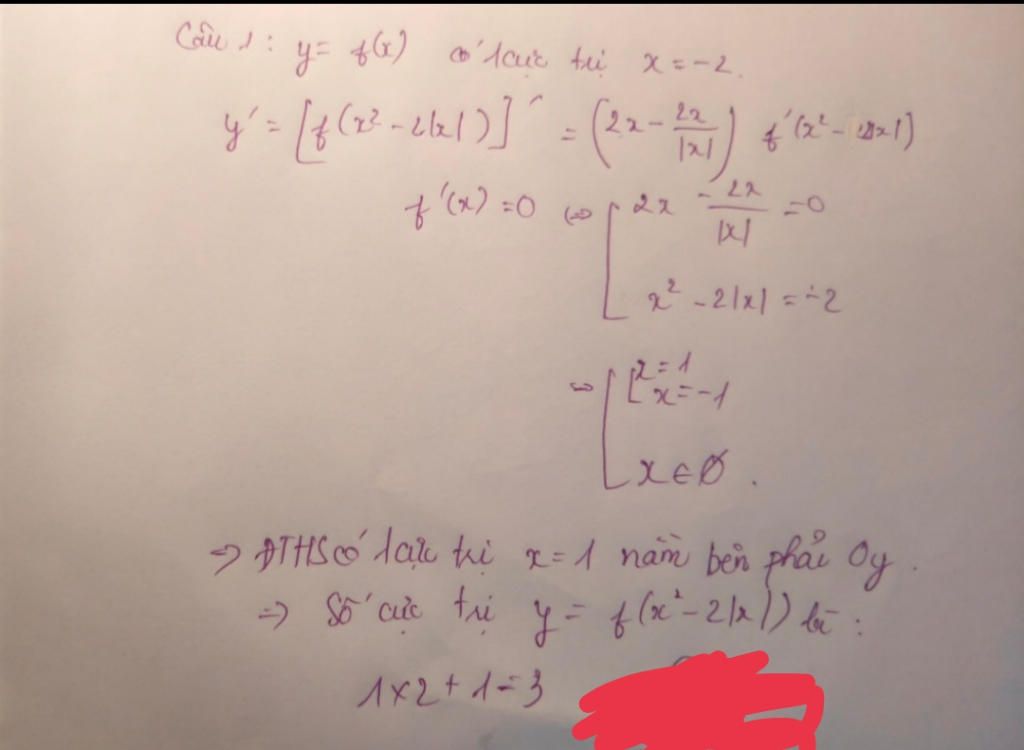 Câu 1: y = f(x) có 1 cực trị x = -2.
y' = [f(x² - 2|x|)]' = (2x - 2x/|x|) f'(x² - 2|x|)
f'(x) = 0 ⇔ [ 2x - 2x/|x| = 0
x² - 2|x| = -2
⇔ [ [ x = 1
x = -1
x ∈ Ø.
⇒ ĐTHS có 1 cực trị x = 1 nằm bên phải Oy.
⇒ Số cực trị y = f(x² - 2|x|) là:
1x2 + 1 = 3